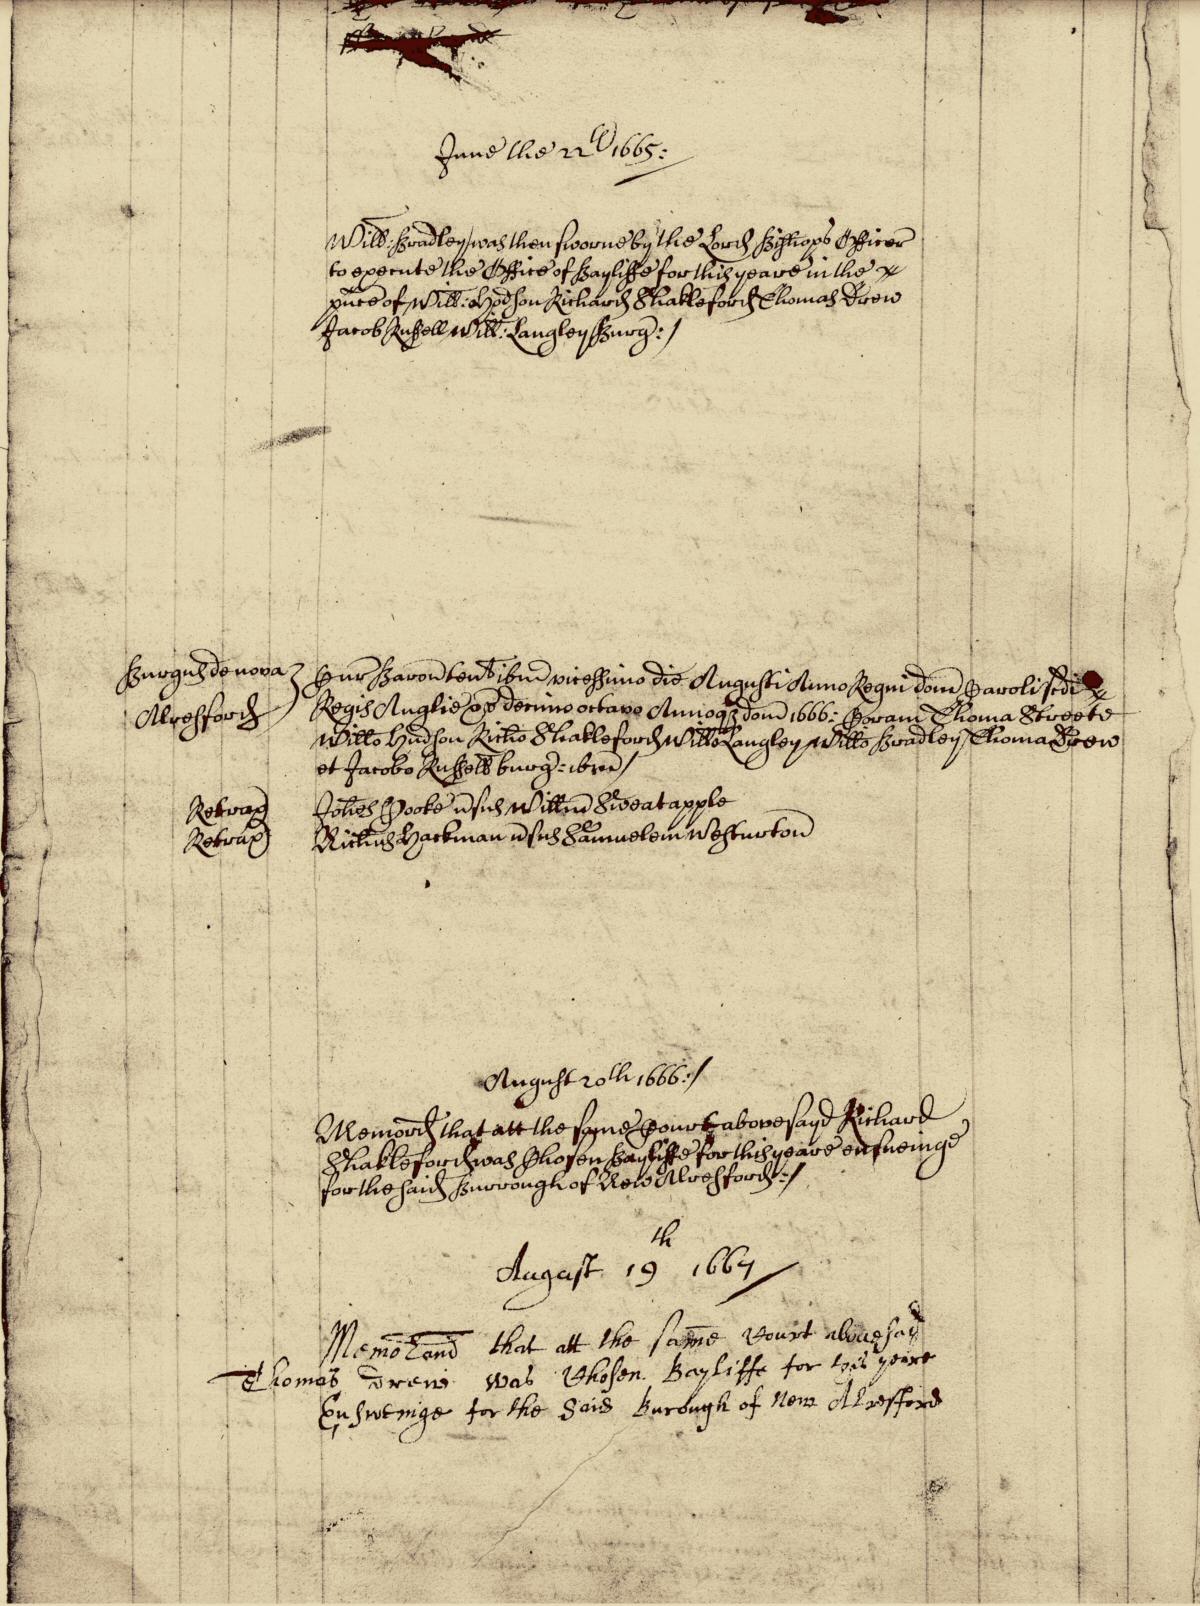 June the 22th 1665:
Will: Bradley was then sworne by the Lord Bishops Officer
to execute the Office of Bayliffe for this yeare in the
pñce of Will: Hodson Richard Shakleford Thomas Drew
Jacob Russell Will: Langley Burg:/
Burgus de nova
Alresford
Cur Baron tent ibm vicessimo die Augusti Anno Regni dom Caroli scdi
Regis Anglie &c decimo octavo Annoq dom 1666: Coram Thoma Streete
Willo Hudson Richo Shakleford Willo Langley Willo Bradley Thoma Drew
et Jacobo Russell burg: ibm/
Retrax Johes Cooke vsus Willm Sweatapple
Retrax Richus Hackman vsus Samuelem Westurton
August 20th 1666:/
Memord that att the same Court abovesayd Richard
Shakleford was Chosen Bayliffe for this yeare ensueinge
for the said Burrough of New Alresford:/
August 19th 1667
Memorand that att the same Court abovesaid
Thomas Drew was Chosen Bayliffe for this yeare
Ensweinge for the Said Burough of New Alresford